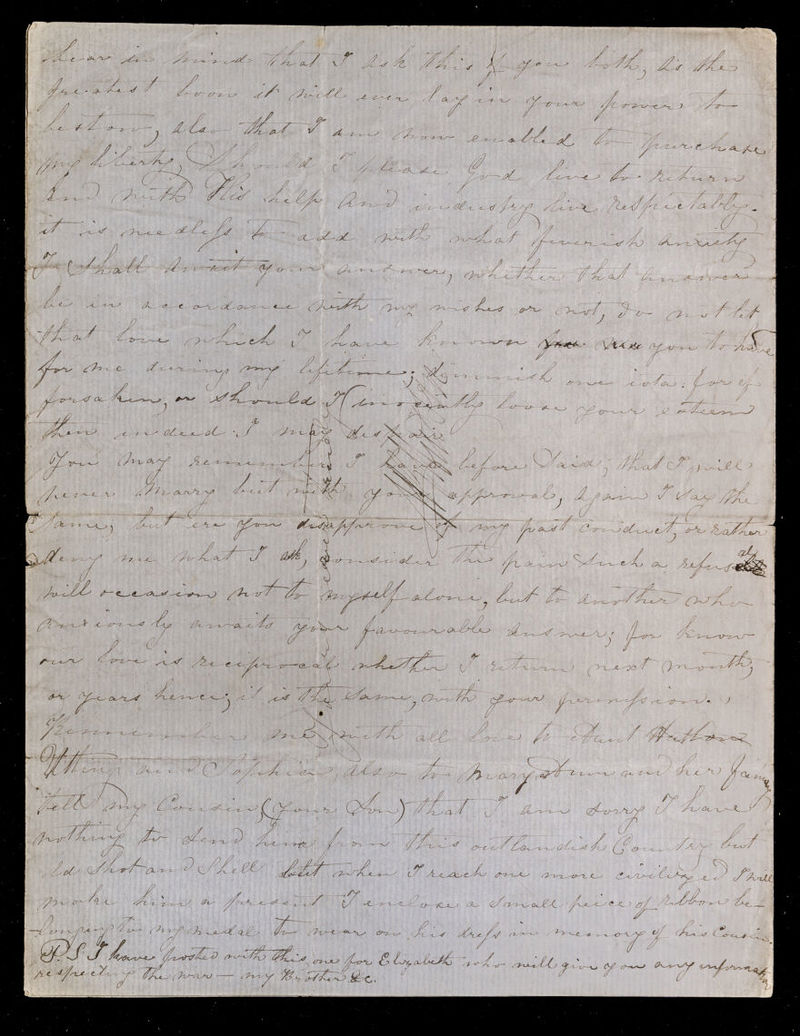 bear in mind that I ask this of you both, as the
greatest boon it will ever lay in your power to
bestow, also that I am now enabled to purchase
my liberty, Should I please God live to return
And with His help And industry live respectably.
it is needless to add with what feverish anxiety
I shall await your answer, whether that answer
be in accordance with my wishes or not, do not let
that love which I have known you to have
for me during my lifetime; diminish one iota: for if
forsaken, or should I (innocently loose your esteem
then indeed I may despair
You may remember I have before Said, that I will
never Marry but with your approval, again I say the
Same, but ere you disapprove of my past conduct, or rather
deny me what I ask, consider the pain Such a refusal
will occasion not to myself alone, but to another who
anxiously awaits your favourable answer; for know
our love is reciprocal whether I return next month,
or years hence; it is the Same, with your permission.
Remember me, with all love to Aunt
Utting and Sophia, also to Mary Ann and her family
tell my Cousin (your Son) that I am sorry I have
nothing to Send him from this outlandish Country but
old Shot and Shell but when I reach one more civilized I will
make him a present I enclose a Small peice of ribbon be-
longing to my medal to wear on his dress in memory of his Cousin.
P.S I have posted with this one for Elizabeth who will give you any information
respecting the war — my Brother &c.